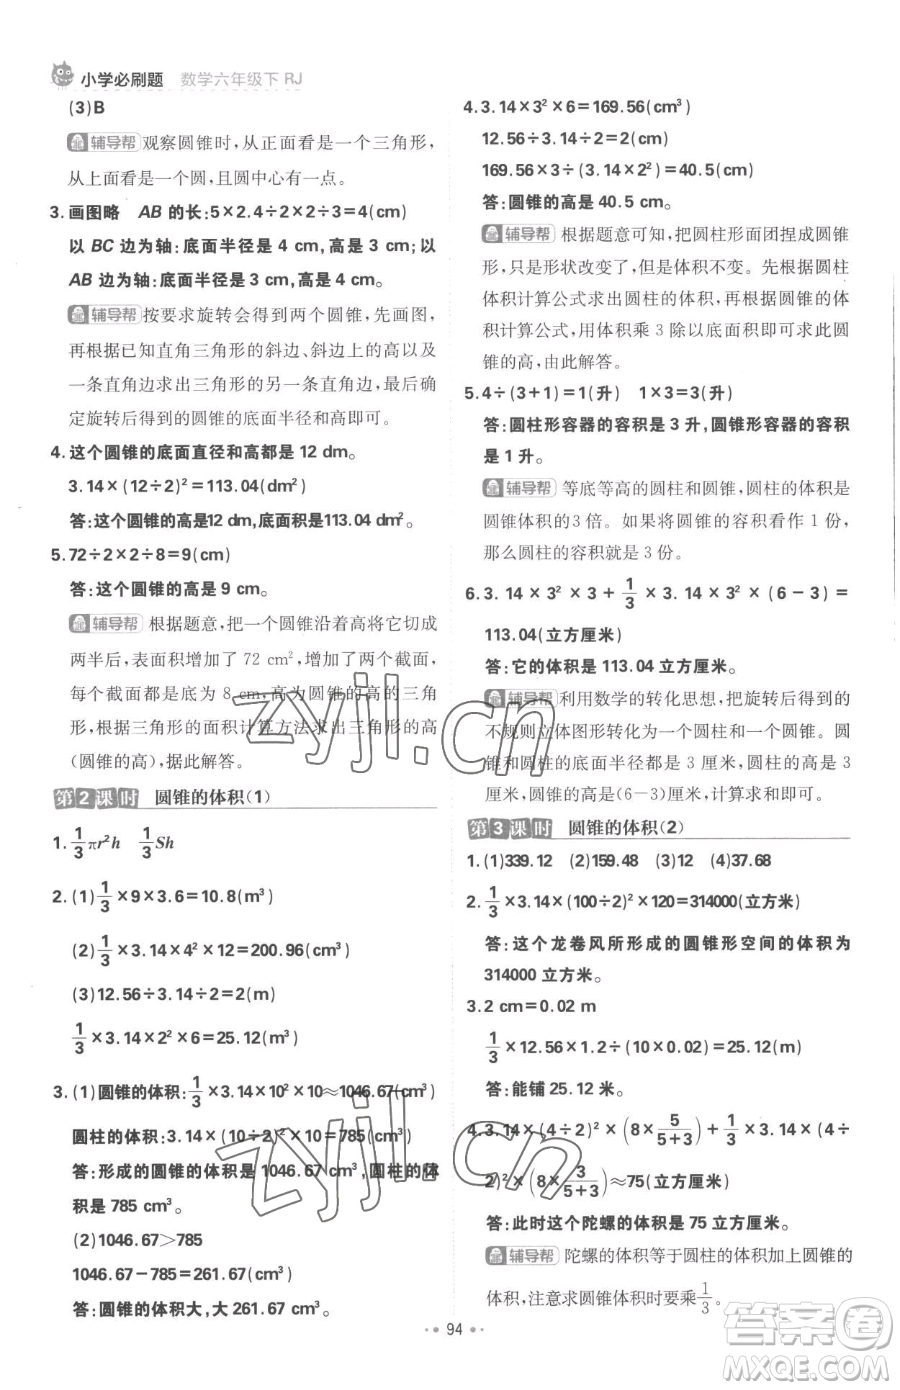 小学必刷题 数学六年级下 RJ
(3)B
辅导帮 观察圆锥时,从正面看是一个三角形,
从上面看是一个圆,且圆中心有一点。
3.画图略 AB 的长:5×2.4÷2×2÷3=4(cm)
以 BC 边为轴:底面半径是 4 cm,高是 3 cm;以
AB 边为轴:底面半径是 3 cm,高是 4 cm。
辅导帮 按要求旋转会得到两个圆锥,先画图,
再根据已知直角三角形的斜边、斜边上的高以及
一条直角边求出三角形的另一条直角边,最后确
定旋转后得到的圆锥的底面半径和高即可。
4.这个圆锥的底面直径和高都是 12 dm。
3.14×(12÷2)²=113.04(dm²)
答:这个圆锥的高是12 dm,底面积是113.04 dm²。
5.72÷2×2÷8=9(cm)
答:这个圆锥的高是 9 cm。
辅导帮 根据题意,把一个圆锥沿着高将它切成
两半后,表面积增加了 72 cm²,增加了两个截面,
每个截面都是底为 8 cm,高为圆锥的高的三角
形,根据三角形的面积计算方法求出三角形的高
(圆锥的高),据此解答。
第2课时 圆锥的体积(1)
1. 1/3 πr²h 1/3 Sh
2.(1) 1/3 ×9×3.6=10.8(m³)
(2) 1/3 ×3.14×4²×12=200.96(cm³)
(3)12.56÷3.14÷2=2(m)
1/3 ×3.14×2²×6=25.12(m³)
3.(1)圆锥的体积: 1/3 ×3.14×10²×10≈1046.67(cm³)
圆柱的体积:3.14×(10÷2)²×10=785(cm³)
答:形成的圆锥的体积是 1046.67 cm³,圆柱的体
积是 785 cm³。
(2)1046.67>785
1046.67-785=261.67(cm³)
答:圆锥的体积大,大 261.67 cm³。
4.3.14×3²×6=169.56(cm³)
12.56÷3.14÷2=2(cm)
169.56×3÷(3.14×2²)=40.5(cm)
答:圆锥的高是 40.5 cm。
辅导帮 根据题意可知,把圆柱形面团捏成圆锥
形,只是形状改变了,但是体积不变。先根据圆柱
体积计算公式求出圆柱的体积,再根据圆锥的体
积计算公式,用体积乘 3 除以底面积即可求出圆
锥的高,由此解答。
5.4÷(3+1)=1(升) 1×3=3(升)
答:圆柱形容器的容积是 3 升,圆锥形容器的容积
是 1 升。
辅导帮 等底等高的圆柱和圆锥,圆柱的体积是
圆锥体积的3倍。如果将圆锥的容积看作 1 份,
那么圆柱的容积就是 3 份。
6.3.14×3²×3+ 1/3 ×3.14×3²×(6-3)=
113.04(立方厘米)
答:它的体积是 113.04 立方厘米。
辅导帮 利用数学的转化思想,把旋转后得到的
不规则立体图形转化为一个圆柱和一个圆锥。圆
锥和圆柱的底面半径都是 3 厘米,圆柱的高是 3
厘米,圆锥的高是(6-3)厘米,计算求和即可。
第3课时 圆锥的体积(2)
1.(1)339.12 (2)159.48 (3)12 (4)37.68
2. 1/3 ×3.14×(100÷2)²×120=314000(立方米)
答:这个龙卷风所形成的圆锥形空间的体积为
314000 立方米。
3.2 cm=0.02 m
1/3 ×12.56×1.2÷(10×0.02)=25.12(m)
答:能铺 25.12 米。
4.3.14×(4÷2)²×(8× 5/(5+3))+ 1/3 ×3.14×(4÷
2)²×(8× 3/(5+3))≈75(立方厘米)
答:此时这个陀螺的体积是 75 立方厘米。
辅导帮 陀螺的体积等于圆柱的体积加上圆锥的
体积,注意求圆锥体积时要乘 1/3。
94
zyjl.cn
zyjl.cn
答案圈
MXQE.COM